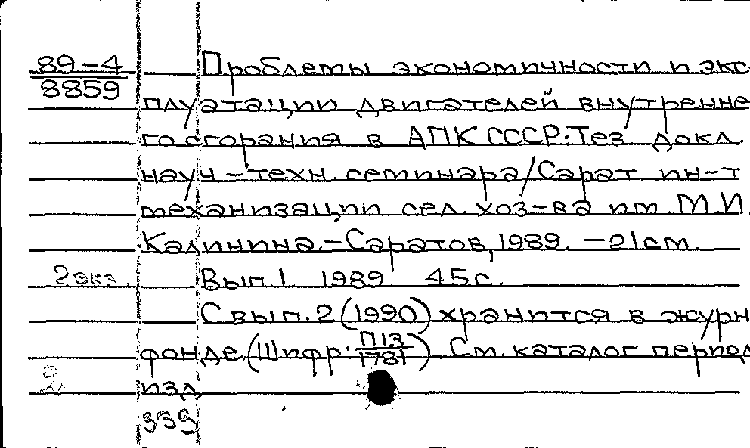 89-4 Проблемы экономичности и экс
8859
плуатации двигателей внутренне
го сгорания в АПК СССР: Тез докл.
науч-техн. семинара/Сарат ин-т
механизации сел. хоз-ва им. М.И.
Калинина.-Саратов, 1989. -21см.
2 экз. Вып. 1 1989 45с.
С вып. 2 (1990) хранится в журн
фонде. (Шифр: П13/1781). См. каталог период
2 изд
339